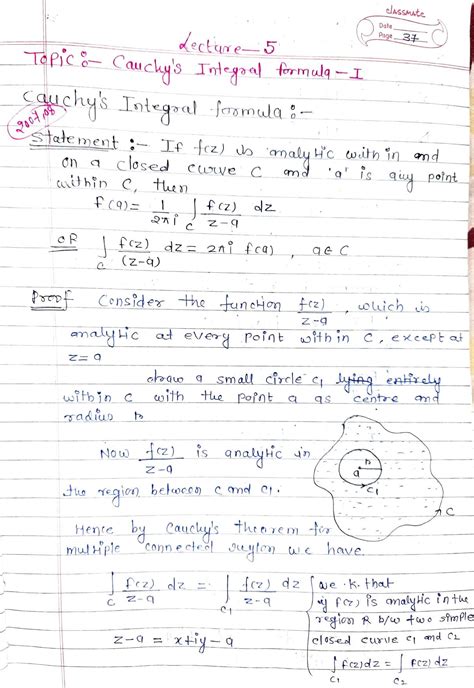 classmate
Date
Page 37
Lecture-5
Topic:- Cauchy's Integral formula-I
Cauchy's Integral formula:-
2007,08
Statement :- If f(z) is analytic within and
on a closed curve C and 'a' is any point
within C, then
f(a) = 1/2πi ∫_C f(z)/z-a dz
or ∫_C f(z)/(z-a) dz = 2πi f(a), a∈C
Proof Consider the function f(z)/z-a, which is
analytic at every point within C, except at
z = a
draw a small circle C1 lying entirely
within C with the point a as centre and
radius r
Now f(z)/z-a is analytic in
the region between C and C1.
r
a
C1
C
Hence by Cauchy's theorem for
multiple connected region we have.
∫_C f(z)/z-a dz = ∫_C1 f(z)/z-a dz
z-a = x+iy-a
we.k.that
if f(z) is analytic in the
region R b/w two simple
closed curve C1 and C2
∫_C1 f(z)dz = ∫_C2 f(z)dz